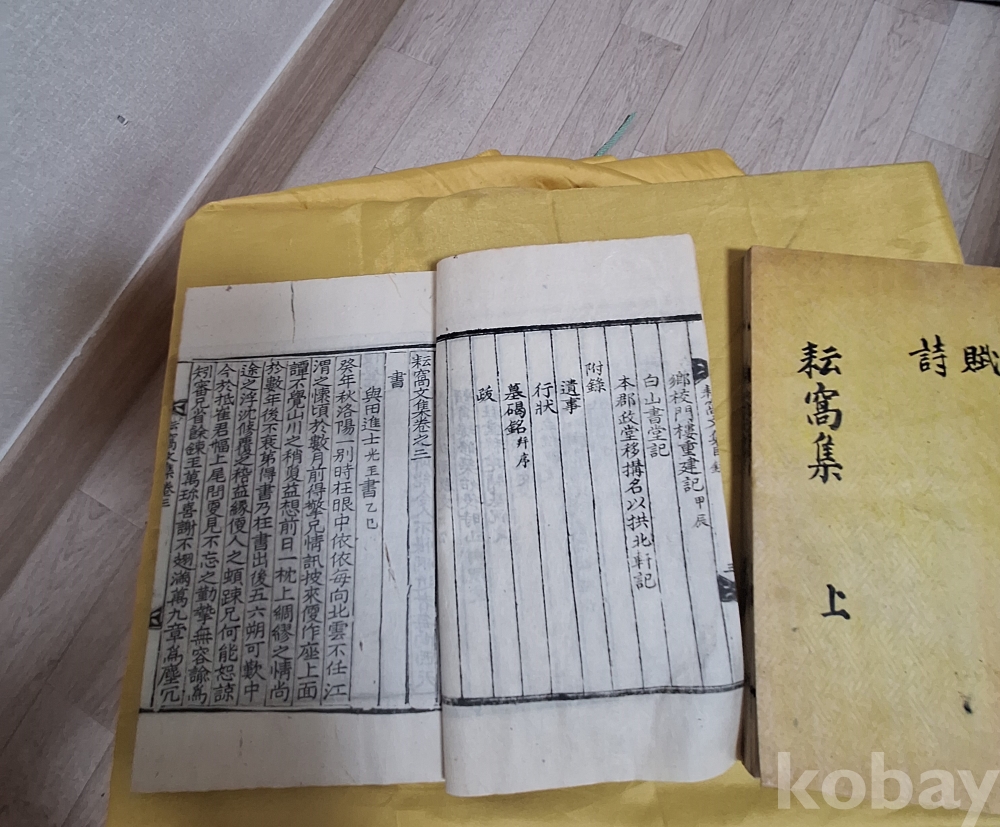 賦
詩
耘窩集 上
耘窩文集目錄
鄉校門樓重建記 甲辰
白山書堂記
本郡政堂移搆名以拱北軒記
附錄
遺事
行狀
墓碣銘 幷序
跋
耘窩文集卷之三
書
與田進士光玉書 乙巳
癸年秋洛陽一別時在眼中依依每向北雲不任江
渭之懷頃於數月前得擎兄情訊披來優作座上面
譚不覺山川之稍敻益想前日枕上綢繆之情尚
於數年後不衰第得書乃在書出後五六朔可歎中
途之浮沈修覆之稽益緣便人之頻踈兄何能恕諒
今於抵崔君幅上尾問更見不忘之勤摯無容諭爲
矧審享省餘鍊玉萬珍喜謝不翅滿萬九章爲塵冗
耘窩文集卷三
kobay